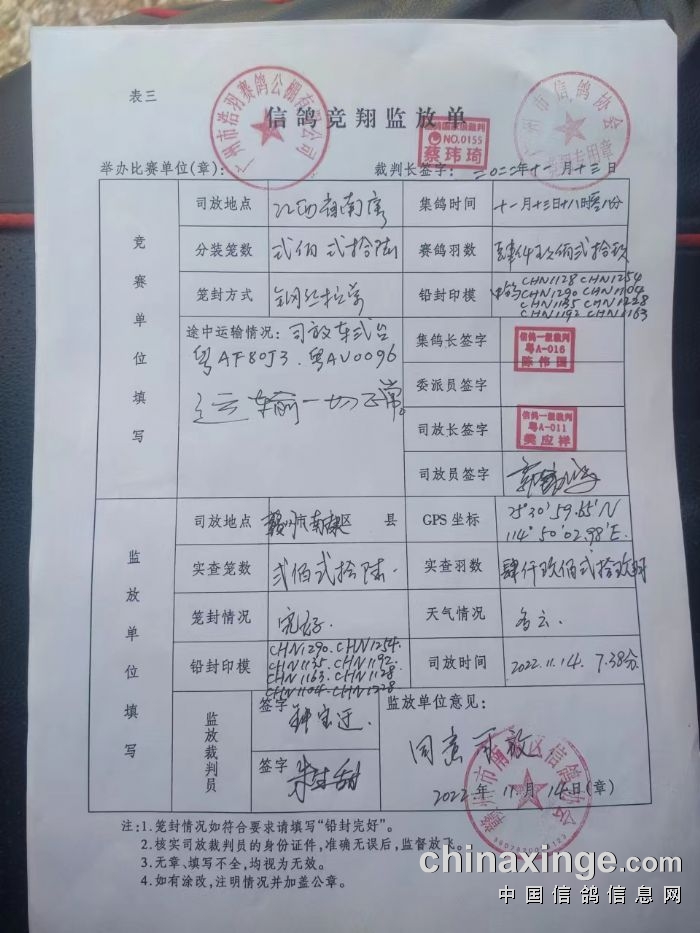 表三
信鸽竞翔监放单
广州市浩羽赛鸽公棚有限公司
州市信鸽协会
竞翔专用章
信鸽国家级裁判
NO.0155
蔡玮琦
举办比赛单位(章):
裁判长签字: 二〇二二年十一月十三日
竞赛单位填写
司放地点 江西省南康
集鸽时间 十一月十三日十八时零八分
分装笼数 贰佰贰拾陆
赛鸽羽数 肆仟玖佰贰拾玖
笼封方式 钢丝拉笼
铅封印模 中鸽 CHN1128 CHN1254
CHN1290 CHN1104
CHN1135 CHN1228
CHN1192 CHN1163
途中运输情况: 司放车贰台
粤AF80J3.粤AV0096
运输一切正常。
集鸽长签字 信鸽一级裁判
粤A-016
陈伟国
委派员签字
司放长签字 信鸽一级裁判
粤A-011
樊应祥
司放员签字
监放单位填写
司放地点 赣州市南康区 县
GPS坐标 25°30′59.65″N
114°50′02.98″E.
实查笼数 贰佰贰拾陆.
实查羽数 肆仟玖佰贰拾玖羽
笼封情况 完好.
天气情况 多云.
铅封印模 CHN1290.CHN1254.
CHN1135.CHN1192.
CHN1163.CHN1128
CHN1104.CHN1228
司放时间 2022.11.14. 7.38分
监放裁判员
签字
签字
监放单位意见:
同意开放
2022年11月14日(章)
赣州市南康区信鸽协会
注:1.笼封情况如符合要求请填写“铅封完好”。
2.核实司放裁判员的身份证件,准确无误后,监督放飞。
3.无章、填写不全,均视为无效。
4.如有涂改,注明情况并加盖公章。
chinaxinge.com
中国信鸽信息网